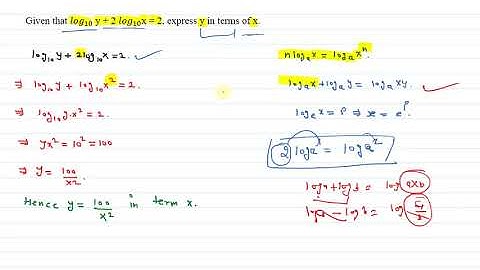 Given that log₁₀ y + 2 log₁₀x = 2, express y in terms of x.
log₁₀y + 2log₁₀x = 2.
⇒ log₁₀y + log₁₀x² = 2.
⇒ log₁₀y·x² = 2.
⇒ yx² = 10² = 100
⇒ y = 100/x².
Hence y = 100/x² in term x.
n logₐx = logₐxⁿ.
logₐx + logₐy = logₐxy.
logₑx = P ⇒ x = eᴾ
2 loga = loga²